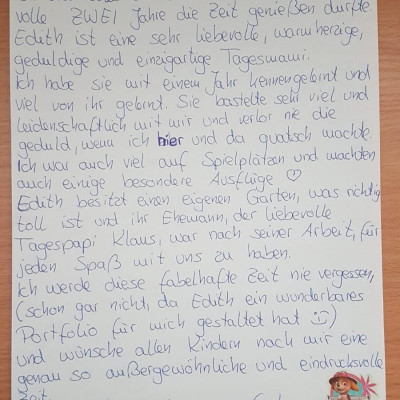 volle ZWEI Jahre die Zeit genießen durfte.
Edith ist eine sehr liebevolle, warmherzige,
geduldige und einzigartige Tagesmami.
Ich habe sie mit einem Jahr kennengelernt und
viel von ihr gelernt. Sie bastelte sehr viel und
leidenschaftlich mit mir und verlor nie die
geduld, wenn ich hier und da quatsch machte.
Ich war auch viel auf Spielplätzen und machten
auch einige besondere Ausflüge ♡
Edith besitzt einen eigenen Garten, was richtig
toll ist und ihr Ehemann, der liebevolle
Tagespapi Klaus, war nach seiner Arbeit, für
jeden Spaß mit uns zu haben.
Ich werde diese fabelhafte Zeit nie vergessen,
(schon gar nicht, da Edith ein wunderbares
Portfolio für mich gestaltet hat :))
und wünsche allen Kindern nach mir eine
genau so außergewöhnliche und eindrucksvolle
Zeit.